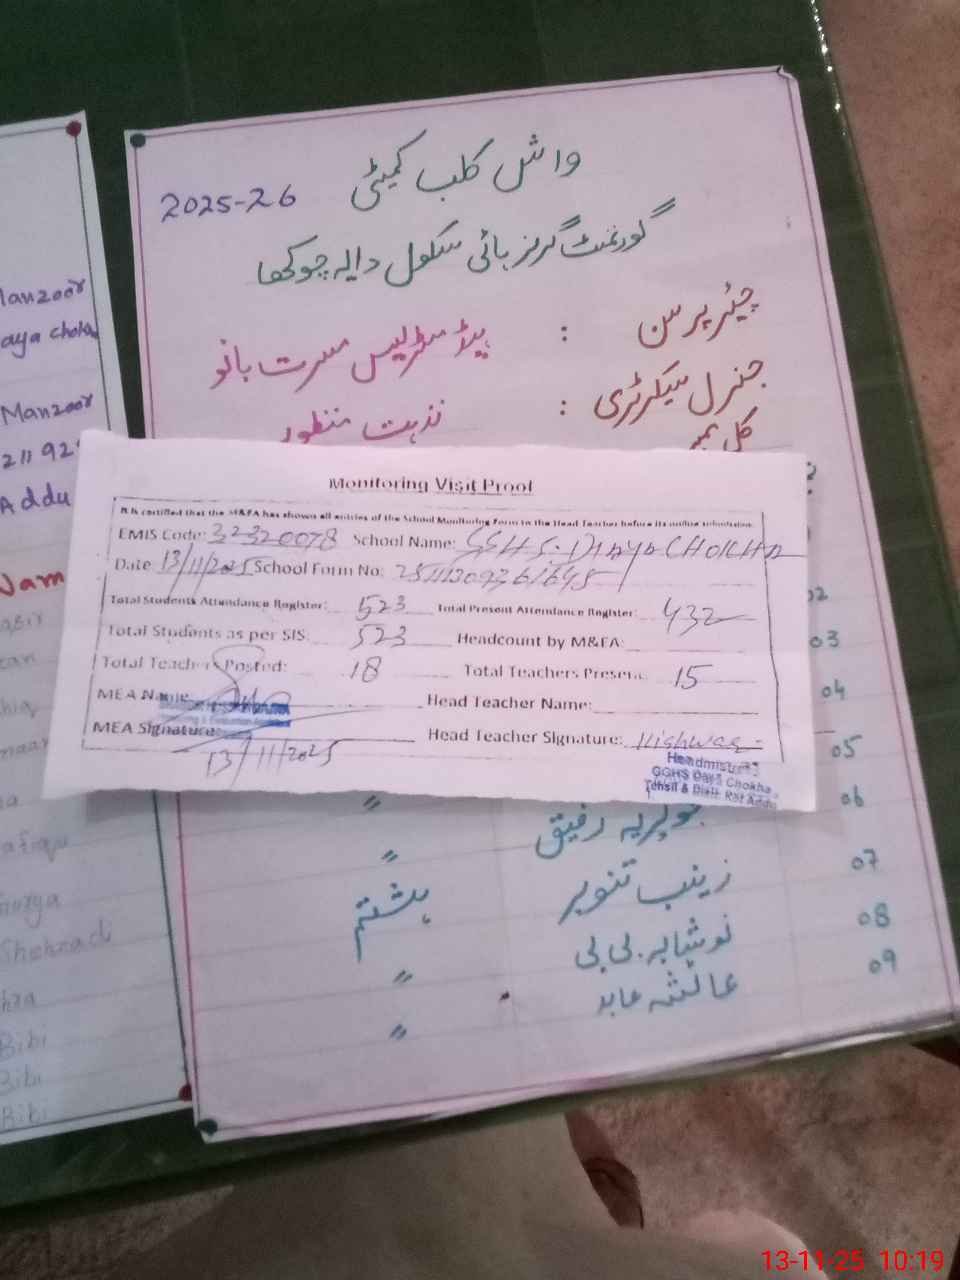 Manzoor
aya chokha
Manzoor
211 92
Addu
Nam
Shehzadi
Bibi
Bibi
Bibi
واش کلب کمیٹی 2025-26
گورنمنٹ گرلز ہائی سکول دایہ چوکھا
چیئر پرسن : ہیڈ مسٹریس مسرت بانو
جنرل سیکرٹری : نذہت منظور
کل
Monitoring Visit Proof
It is certified that the M&EA has shown all entries of the School Monitoring Form to the Head Teacher before its online submission.
EMIS Code: 32320078 School Name: GGHS. Daya CHOKHA
Date: 13/11/2025 School Form No:
Total Students Attendance Register: 523 Total Present Attendance Register: 432
Total Students as per SIS: 523 Headcount by M&EA:
Total Teachers Posted: 18 Total Teachers Present: 15
MEA Name: Head Teacher Name:
MEA Signature: Head Teacher Signature:
13/11/2025
Headmistress
GGHS Daya Chokha
Tehsil & Distt. Kot Addu
02
03
04
05
06
جویریہ رفیق 〃
07 زینب تنویر ہشتم
08 نوشابہ بی بی 〃
09 عائشہ عابد 〃
13-11-25 10:19